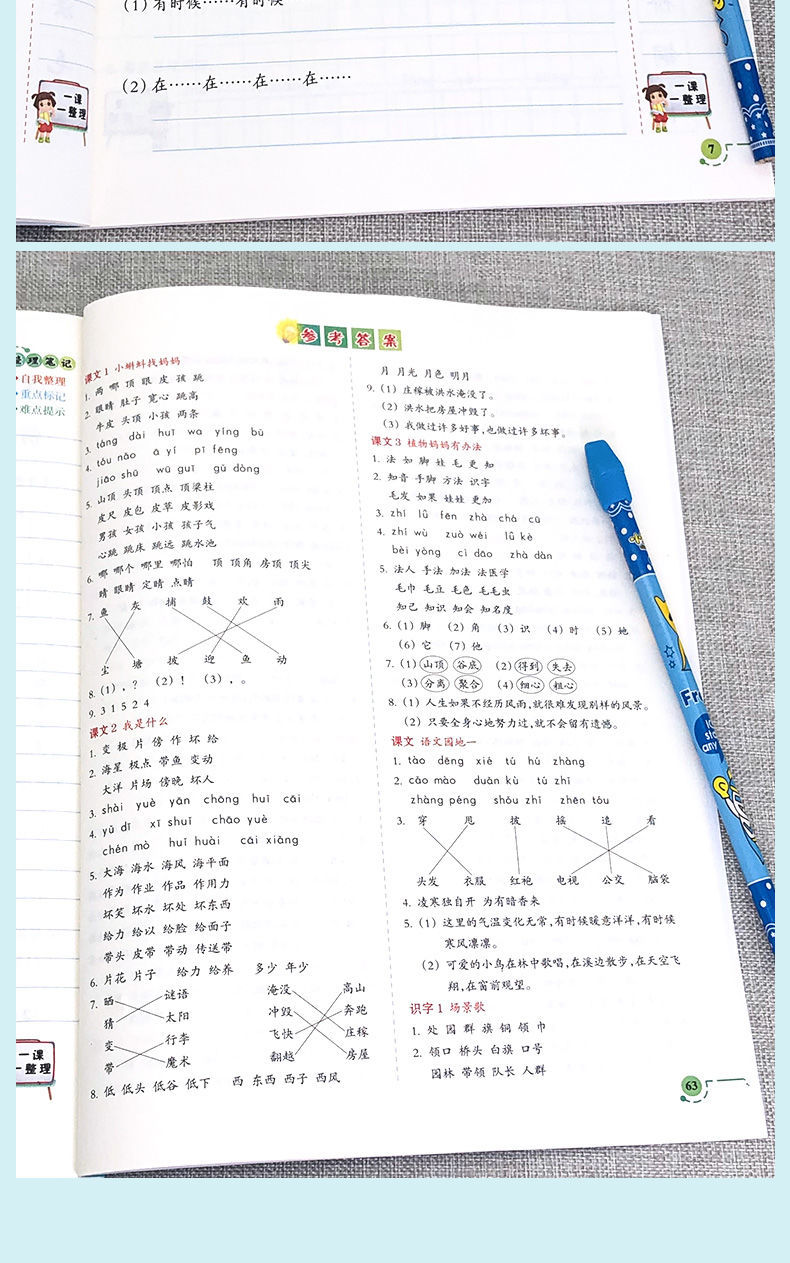 (1) 有时候……有时候
(2) 在……在……在……在……
一课
一整理
一课
一整理
7
整理笔记
自我整理
重点标记
难点提示
一课
一整理
参考答案
课文1 小蝌蚪找妈妈
1. 两 哪 顶 眼 皮 孩 跳
2. 眼睛 肚子 宽心 跳高
牛皮 头顶 小孩 两条
3. táng dài huī wa yíng bù
4. tóu nǎo ā yí pī fēng
jiāo shū wū guī gǔ dòng
5. 山顶 头顶 顶点 顶梁柱
皮尺 皮包 皮草 皮影戏
男孩 女孩 小孩 孩子气
心跳 跳床 跳远 跳水池
6. 哪 哪个 哪里 哪怕 顶 顶角 房顶 顶尖
睛 眼睛 定睛 点睛
7. 鱼 灰 捕 鼓 欢 雨
尘 塘 披 迎 鱼 动
8. (1) , ? (2) ! (3) , 。
9. 3 1 5 2 4
课文2 我是什么
1. 变 极 片 傍 作 坏 给
2. 海星 极点 带鱼 变动
大洋 片场 傍晚 坏人
3. shài yuè yān chōng huǐ cāi
4. yǔ dī xī shuǐ chāo yuè
chén mò huǐ huài cái xiǎng
5. 大海 海水 海风 海平面
作为 作业 作品 作用力
坏笑 坏水 坏处 坏东西
给力 给以 给脸 给面子
带头 皮带 带动 传送带
6. 片花 片子 给力 给养 多少 年少
7. 晒 谜语 淹没 高山
猜 太阳 冲毁 奔跑
变 行李 飞快 庄稼
带 魔术 翻越 房屋
8. 低 低头 低谷 低下 西 东西 西子 西风
月 月光 月色 明月
9. (1) 庄稼被洪水淹没了。
(2) 洪水把房屋冲毁了。
(3) 我做过许多好事,也做过许多坏事。
课文3 植物妈妈有办法
1. 法 如 脚 娃 毛 更 知
2. 知音 手脚 方法 识字
毛发 如果 娃娃 更加
3. zhí lǚ fēn zhà chá cū
4. zhí wù zuò wéi lǚ kè
bèi yòng cì dāo zhà dàn
5. 法人 手法 加法 法医学
毛巾 毛豆 毛色 毛毛虫
知己 知识 知会 知名度
6. (1) 脚 (2) 角 (3) 识 (4) 时 (5) 她
(6) 它 (7) 他
7. (1) 山顶 谷底 (2) 得到 失去
(3) 分离 聚合 (4) 细心 粗心
8. (1) 人生如果不经历风雨,就很难发现别样的风景。
(2) 只要全身心地努力过,就不会留有遗憾。
课文 语文园地一
1. tào dēng xié tú hú zhàng
2. cǎo mào duǎn kù tú zhǐ
zhàng péng shǒu zhǐ zhēn tóu
3. 穿 甩 披 摇 追 看
头发 衣服 红袍 电视 公交 脑袋
4. 凌寒独自开 为有暗香来
5. (1) 这里的气温变化无常,有时候暖意洋洋,有时候
寒风凛凛。
(2) 可爱的小鸟在林中歌唱,在溪边散步,在天空飞
翔,在窗前观望。
识字1 场景歌
1. 处 园 群 旗 铜 领 巾
2. 领口 桥头 白旗 口号
园林 带领 队长 人群
63